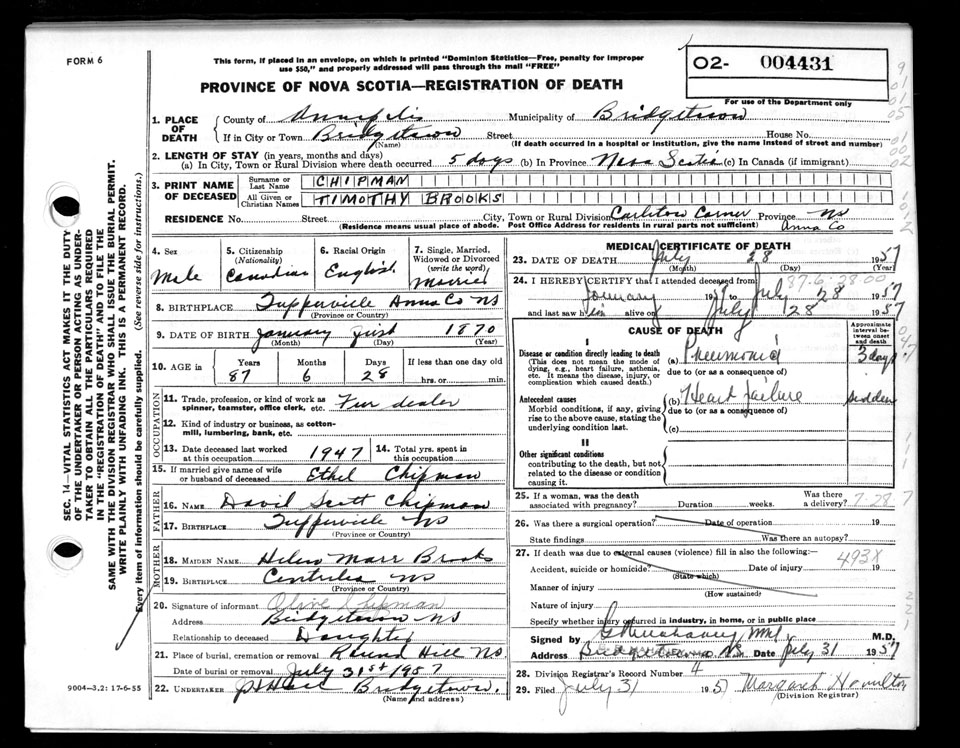 FORM 6
This form, if placed in an envelope, on which is printed "Dominion Statistics—Free, penalty for improper
use $50," and properly addressed will pass through the mail "FREE"
PROVINCE OF NOVA SCOTIA—REGISTRATION OF DEATH
02- 004431
For use of the Department only
1. PLACE OF DEATH
County of Annapolis Municipality of Bridgetown
If in City or Town Bridgetown Street House No.
(Name) (If death occurred in a hospital or institution, give the name instead of street and number)
2. LENGTH OF STAY (in years, months and days)
(a) In City, Town or Rural Division where death occurred 5 days (b) In Province Nova Scotia (c) In Canada (if immigrant)
3. PRINT NAME OF DECEASED
Surname or Last Name CHIPMAN
All Given or Christian Names TIMOTHY BROOKS
RESIDENCE No. Street City, Town or Rural Division Carleton Corner Province NS
(Residence means usual place of abode. Post Office Address for residents in rural parts not sufficient) Anna Co
4. Sex Male
5. Citizenship (Nationality) Canadian
6. Racial Origin English
7. Single, Married, Widowed or Divorced (write the word) Married
8. BIRTHPLACE Tupperville Anna Co NS
(Province or Country)
9. DATE OF BIRTH January First 1870
(Month) (Day) (Year)
10. AGE in Years 87 Months 6 Days 28 If less than one day old
hrs. or min.
OCCUPATION
11. Trade, profession, or kind of work as spinner, teamster, office clerk, etc. Fur dealer
12. Kind of industry or business, as cotton-mill, lumbering, bank, etc.
13. Date deceased last worked at this occupation 1947 14. Total yrs. spent in this occupation
15. If married give name of wife or husband of deceased Ethel Chipman
FATHER
16. NAME David Scott Chipman
17. BIRTHPLACE Tupperville NS
(Province or Country)
MOTHER
18. MAIDEN NAME Helen Marr Brooks
19. BIRTHPLACE Centrelea NS
(Province or Country)
20. Signature of informant Olive Chipman
Address Bridgetown NS
Relationship to deceased Daughter
21. Place of burial, cremation or removal Round Hill NS.
Date of burial or removal July 31st 1957
22. UNDERTAKER Bridgetown.
(Name and address)
MEDICAL CERTIFICATE OF DEATH
23. DATE OF DEATH July 28 1957
(Month) (Day) (Year)
24. I HEREBY CERTIFY that I attended deceased from 87-6-28-00
January 1957 to July 28 1957
and last saw him alive on July 28 1957
CAUSE OF DEATH
Approximate interval between onset and death
I
Disease or condition directly leading to death (a) Pneumonia 3 days
(This does not mean the mode of dying, e.g., heart failure, asthenia, etc. It means the disease, injury, or complication which caused death.)
due to (or as a consequence of)
Antecedent causes (b) Heart failure sudden
Morbid conditions, if any, giving rise to the above cause, stating the underlying condition last.
due to (or as a consequence of)
(c)
II
Other significant conditions
contributing to the death, but not related to the disease or condition causing it.
25. If a woman, was the death associated with pregnancy? Duration weeks. Was there a delivery? 7-28-7
26. Was there a surgical operation? Date of operation 19
State findings Was there an autopsy?
27. If death was due to external causes (violence) fill in also the following:
Accident, suicide or homicide? Date of injury 19 493X
(State which)
Manner of injury
(How sustained)
Nature of injury
Specify whether injury occurred in industry, in home, or in public place
Signed by M.D.
Address Bridgetown NS Date July 31 1957
28. Division Registrar's Record Number 4
29. Filed July 31 1957 Margaret Hamilton
(Division Registrar)
9004—3.2: 17-6-55
SEC. 14—VITAL STATISTICS ACT MAKES IT THE DUTY
OF THE UNDERTAKER OR PERSON ACTING AS UNDER-
TAKER TO OBTAIN ALL THE PARTICULARS REQUIRED
IN THE "REGISTRATION OF DEATH" AND TO FILE THE
SAME WITH THE DIVISION REGISTRAR WHO SHALL ISSUE THE BURIAL PERMIT.
WRITE PLAINLY WITH UNFADING INK. THIS IS A PERMANENT RECORD.
Every item of information should be carefully supplied. (See reverse side for instructions.)